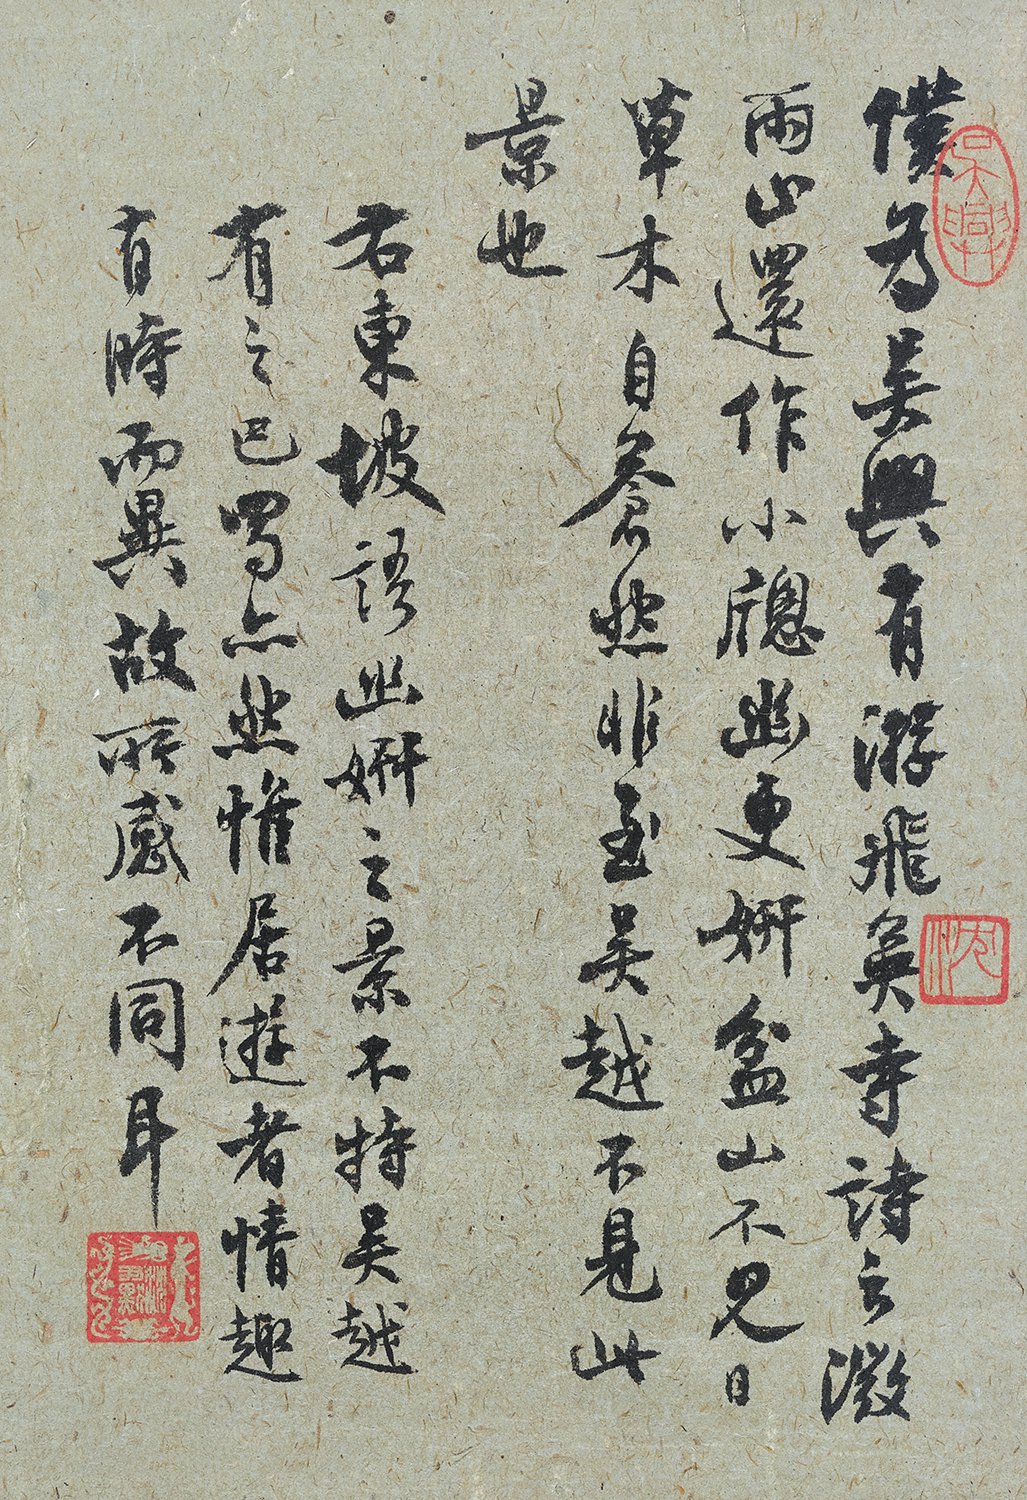 僕為吳興有游飛英寺詩云微
雨山還作小窻幽更妍盆山不見日
草木自蒼然非至吳越不見此
景也
右東坡語幽妍之景不特吳越
有之巴蜀亦然惟居遊者情趣
有時而異故所感不同耳